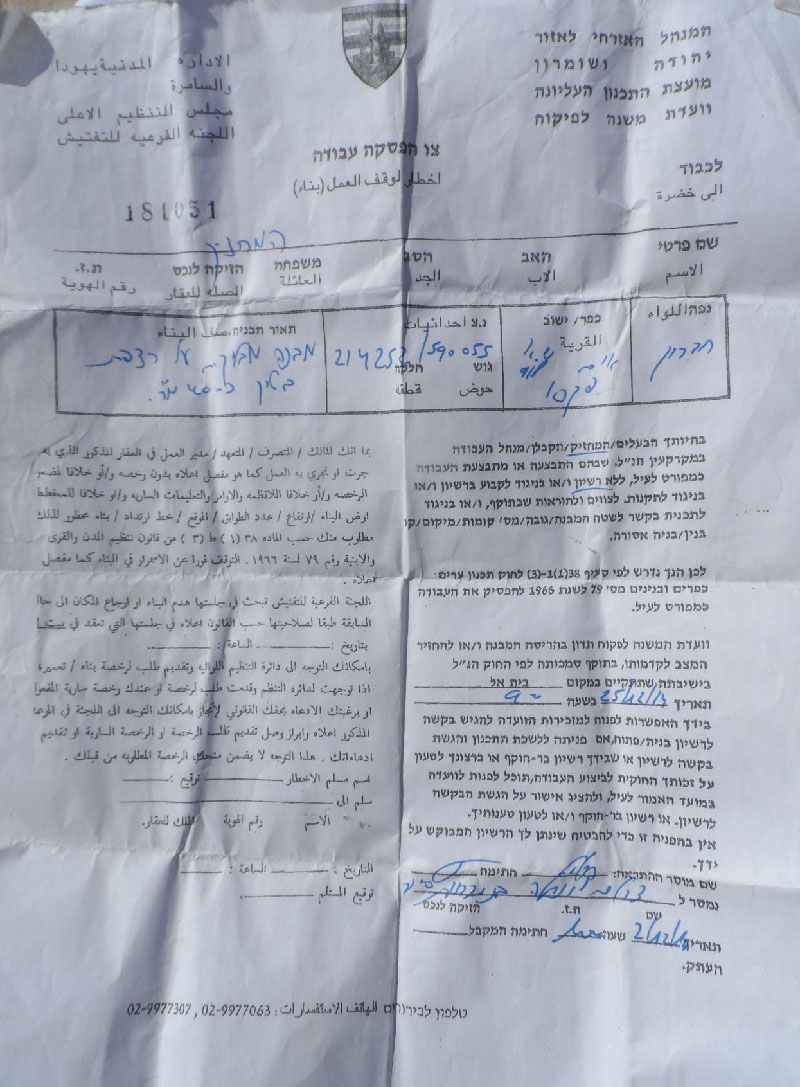 המנהל האזרחי לאזור
יהודה ושומרון
מועצת התכנון העליונה
וועדת משנה לפיקוח
الادارة المدنية يهودا
والسامرة
مجلس التنظيم الاعلى
اللجنه الفرعيه للتفتيش
צו הפסקת עבודה
اخطار لوقف العمل (بناء)
לכבוד
الى حضرة
181051
המחזיק
שם פרטי האב הסב משפחה הזיקה לנכס ת.ז.
الاسم الاب الجد العائلة الصله للعقار رقم الهوية
נפה اللواء כפר/ ישוב القرية נ.צ احداثيات תאור המבניה وصف البناء
חברון
214252/590055
גוש חלקה
حوض قطعة
מבנה על רצפת
בטון כ-
בהיותך הבעלים/המחזיק/הקבלן/מנהל העבודה
במקרקעין הנ״ל. שבהם התבצעה או מתבצעת העבודה
כמפורט לעיל, ללא רשיון ו/או בניגוד לקבוע ברשיון ו/או
בניגוד לתקנות. לצווים ולהוראות שבתוקף, ו/או בניגוד
לתכנית בקשר לשטח המבנה/גובה/מס׳ קומות/מיקום/קו
בנין/בניה אסורה.
לכן הנך נדרש לפי סעיף 38(1)(3)-1 לחוק תכנון ערים
כפרים ובנינים מס׳ 79 לשנת 1966 להפסיק את העבודה
כמפורט לעיל.
וועדת המשנה לפקוח תדון בהריסת המבנה ו/או להחזיר
המצב לקדמותו, בתוקף סמכותה לפי החוק הנ״ל
בישיבתה שתתקיים במקום בית אל
תאריך 25/12/ בשעה 9
בידך האפשרות לפנות למזכירות הוועדה להגיש בקשה
לרשיון בניה/פתוח, אם פניתה ללשכת התכנון והגשת
בקשה לרשיון או שבידך רשיון בר-תוקף או ברצונך לטעון
על זכותך החוקית לביצוע העבודה, תוכל לפנות לוועדה
במועד האמור לעיל, ולהציג אישור על הגשת הבקשה
לרשיון. או רשיון בר-תוקף ו/או לטעון טענותיך.
אין בהפניה זו כדי להבטיח שינתן לך הרשיון המבוקש על
ידך.
שם מוסר ההתראה: חתימה
נמסר ל
שם ת.ז. הזיקה לנכס
תאריך 2/12/ שעה חתימה המקבל
העתק.
بما انك المالك / المتصرف / المتعهد / مدير العمل في العقار المذكور الذي به
جرت او تجري به العمل كما هو مفصل اعلاه بدون رخصه و/أو خلافا لمضمون
الرخصه و/أو خلافا للانظمه والاوامر والتعليمات الساريه و/او خلافا للمخطط
ارض البناء /ارتفاع / عدد الطوابق / الموقع / خط ارتداد / بناء محظور لذلك
مطلوب منك حسب الماده ٣٨ (١) ط (٣) من قانون تنظيم المدن والقرى
والابنية رقم ٧٩ لسنة ١٩٦٦ . التوقف فورا عن الاستمرار في البناء كما مفصل
اعلاه .
اللجنه الفرعية للتفتيش تبحث في جلستها هدم البناء او ارجاع المكان الى حالته
السابقة طبقا لصلاحيتها حسب القانون اعلاه في جلستها التي تعقد في
بتاريخ: الساعة:
بامكانك التوجه الى دائرة التنظيم اللوائيه وتقديم طلب لرخصة بناء / تعمير،
اذا توجهت لدائره التنظم وقدمت طلب لرخصة او عندك رخصة سارية المفعول
او برغبتك الادعاء بحقك القانوني لإنجاز بامكانك التوجه الى اللجنة في الموعد
المذكور اعلاه وابراز وصل تقديم طلب لرخصة او الرخصة السارية او تقديم
ادعاءاتك . هذا التوجه لا يضمن منحك الرخصة المطلوبه من قبلك .
اسم مسلم الاخطار توقيع :
سلم الى
الاسم رقم الهوية الملك للعقار.
التاريخ : الساعة :
توقيع المستلم
טלפון לבירורים الهاتف الاستفسارات : 02-9977063 , 02-9977307